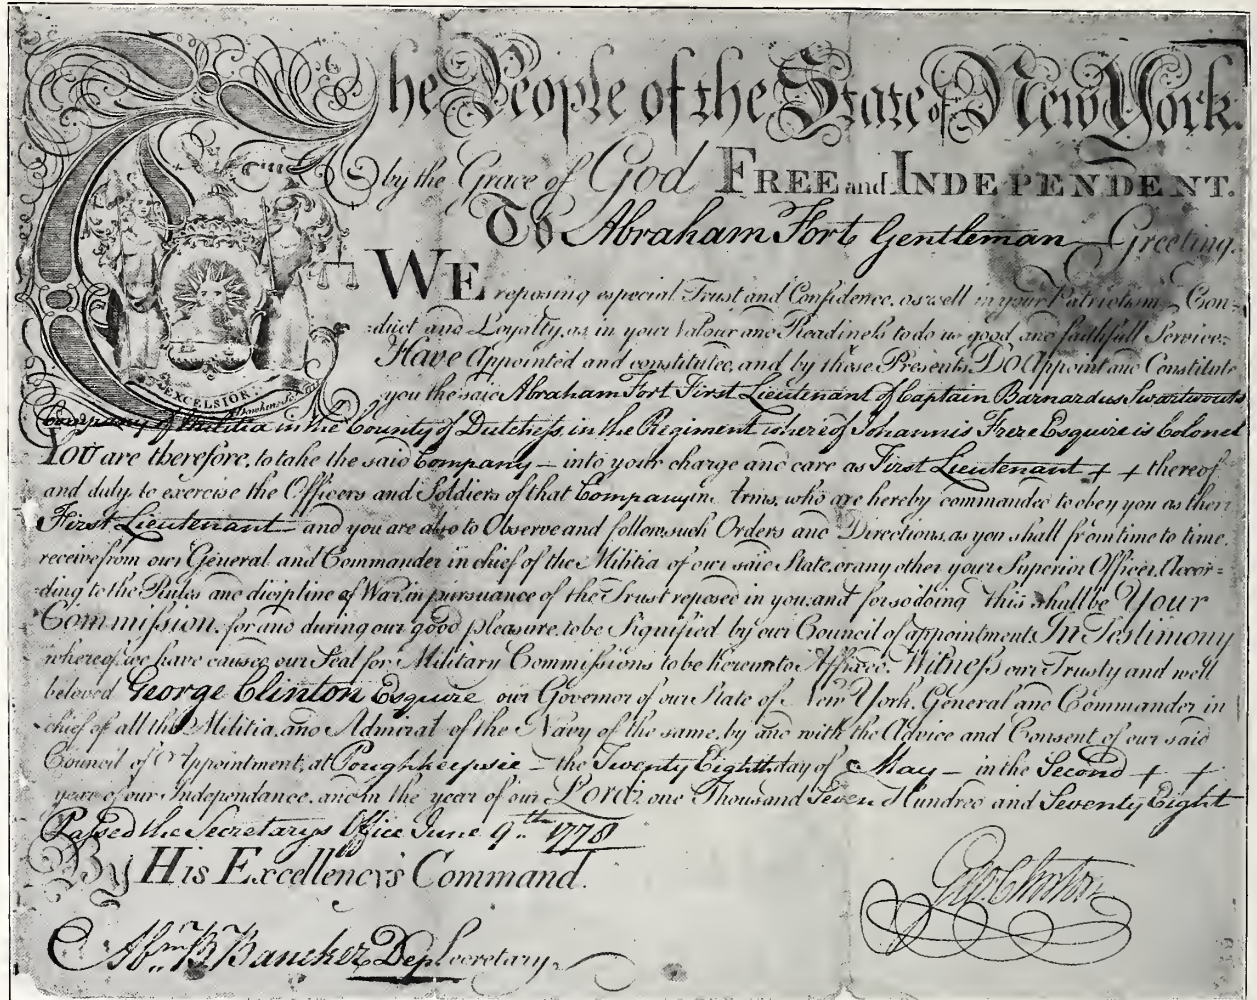 The People of the State of New York.
by the Grace of God FREE and INDEPENDENT.
To Abraham Fort Gentleman Greeting.
WE reposing especial Trust and Confidence, as well in your Patriotism, Con=
duct and Loyalty, as in your Valour and Readiness to do us good and faithfull Service;
Have Appointed and constituted, and by these Presents, DO Appoint and Constitute
EXCELSIOR.
you the said Abraham Fort First Lieutenant of Captain Barnardus Swartwouts
Company of Militia in the County of Dutchess, in the Regiment where of Johannis Frere Esquire is Colonel
YOU are therefore, to take the said Company – into your charge and care as First Lieutenant + + thereof
and duly to exercise the Officers and Soldiers of that Company in Arms, who are hereby commanded to obey you as their
First Lieutenant – and you are also to Observe and follow such Orders and Directions, as you shall from time to time,
receive from our General and Commander in chief of the Militia of our said State, or any other your Superior Officer, Accor=
ding to the Rules and dicipline of War, in pursuance of the Trust reposed in you, and for so doing this shall be Your
Commission, for and during our good pleasure, to be Signified by our Council of appointment. In Testimony
whereof, we have caused our Seal for Military Commissions to be hereunto Affixed. Witness our Trusty and well
beloved George Clinton Esquire our Governor of our State of New York, General and Commander in
chief of all the Militia, and Admiral of the Navy of the same, by and with the Advice and Consent of our said
Council of Appointment, at Poughkeepsie – the Twenty Eighth day of May – in the Second + +
year of our Independance, and in the year of our Lord, one Thousand Seven Hundred and Seventy Eight
Passed the Secretarys Office June 9th 1778
By His Excellency's Command.
Geo. Clinton
Abm. B. Bancker Dep Secretary